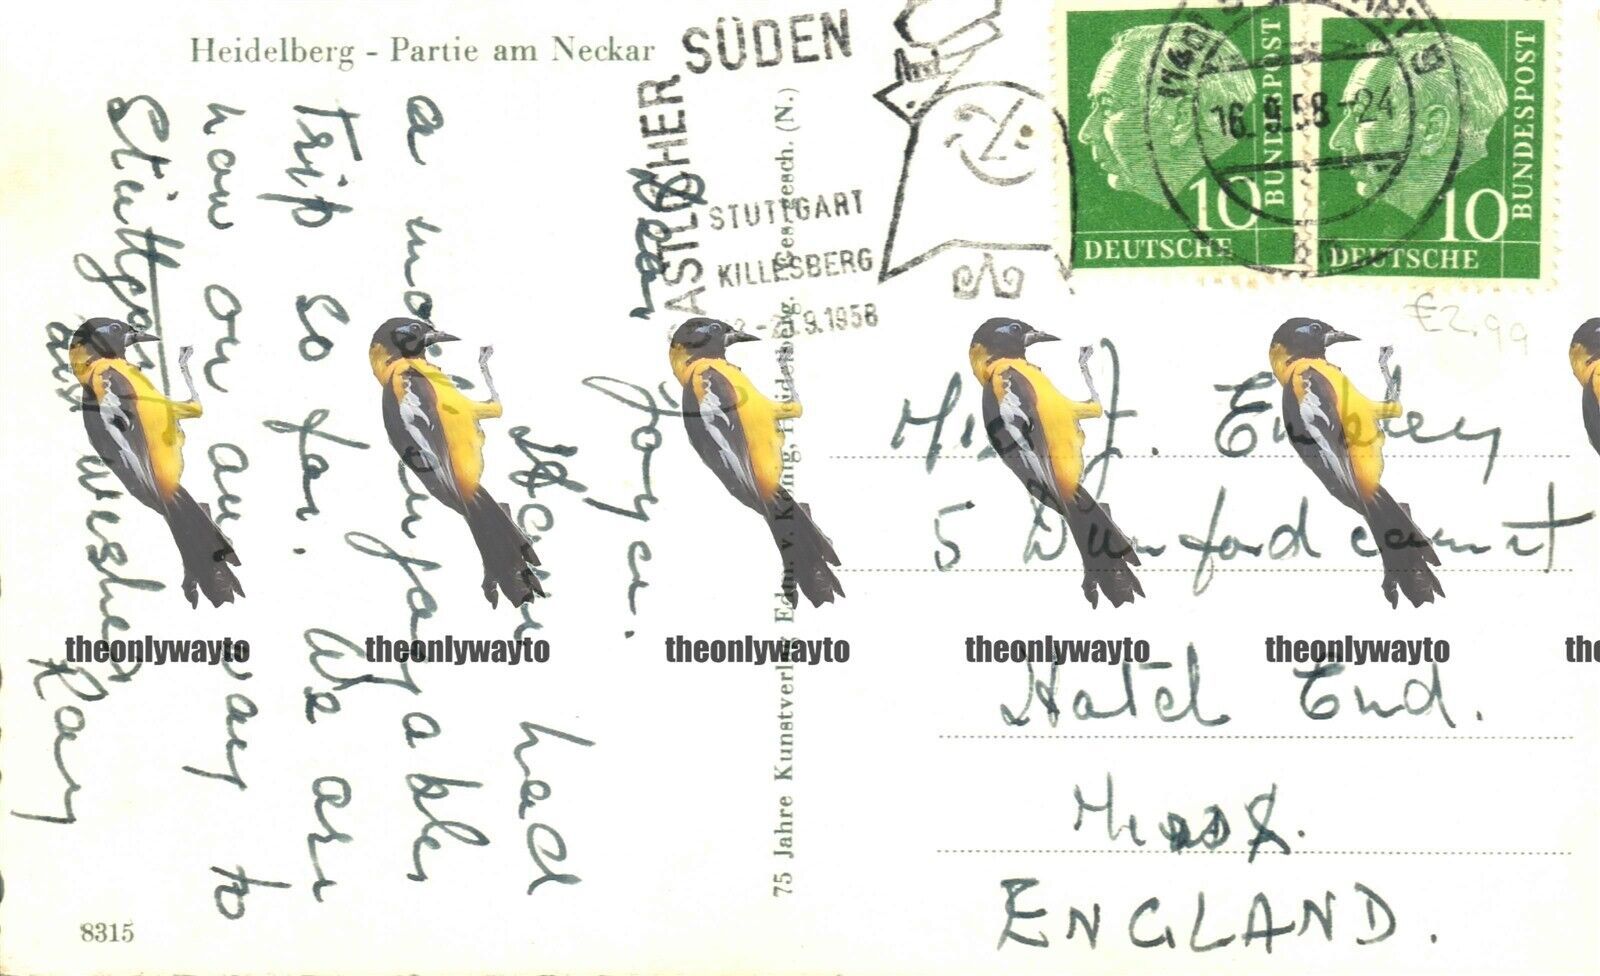 Heidelberg - Partie am Neckar
8315
Dear
Joyce.
Have had
a most enjoyable
trip so far. We are
now on our way to
Stuttgart
Best wishes
Ray
75 Jahre Kunstverlag Edm. v. König, Heidelberg. Ges. gesch. (N.)
SÜDEN
STUTTGART
KILLESBERG
9.1958
16. 58-24
10
DEUTSCHE
BUNDESPOST
10
DEUTSCHE
BUNDESPOST
€2.99
J.
5 Dunford court
Hatch End.
Middx.
ENGLAND.
theonlywayto
theonlywayto
theonlywayto
theonlywayto
theonlywayto